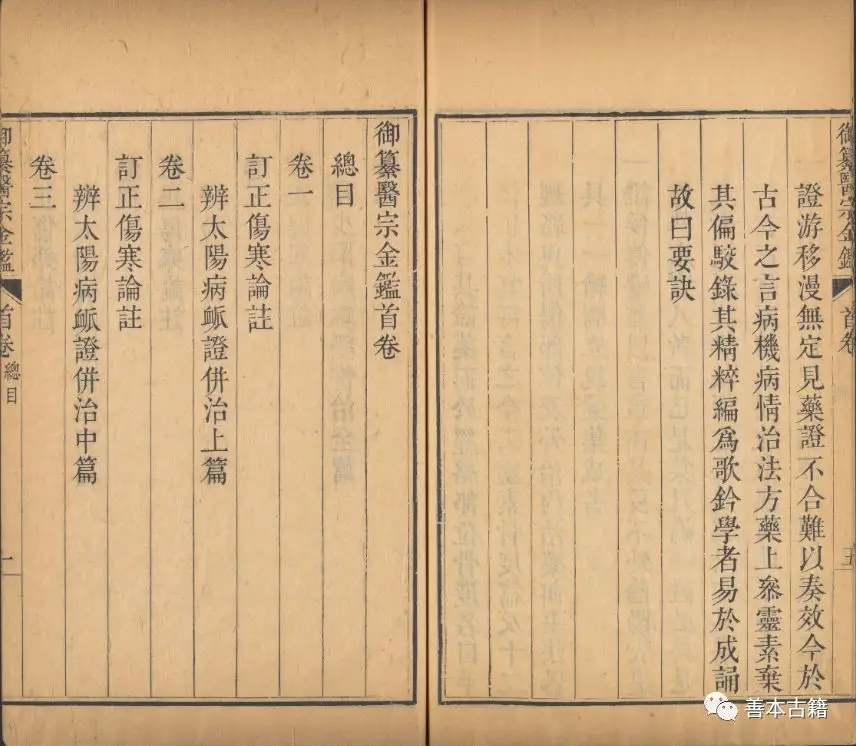 御纂醫宗金鑑
首卷
五
證游移漫無定見藥證不合難以奏效今於
古今之言病機病情治法方藥上叅靈素棄
其偏駁錄其精粹編爲歌鈐學者易於成誦
故曰要訣
御纂醫宗金鑑首卷
總目
卷一
訂正傷寒論註
辨太陽病脈證併治上篇
卷二
訂正傷寒論註
辨太陽病脈證併治中篇
卷三
御纂醫宗金鑑
首卷
總目
一
善本古籍